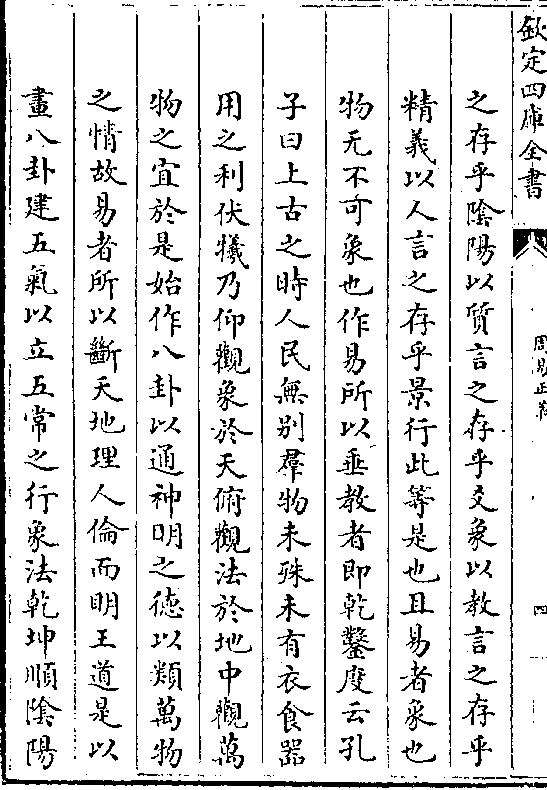 欽定四庫全書
周易正義
四
之存乎陰陽以質言之存乎爻象以教言之存乎
精義以人言之存乎景行此等是也且易者象也
物无不可象也作易所以垂教者即乾鑿度云孔
子曰上古之時人民無别羣物未殊未有衣食器
用之利伏犧乃仰觀象於天俯觀法於地中觀萬
物之宜於是始作八卦以通神明之徳以類萬物
之情故易者所以斷天地理人倫而明王道是以
畫八卦建五氣以立五常之行象法乾坤順陰陽